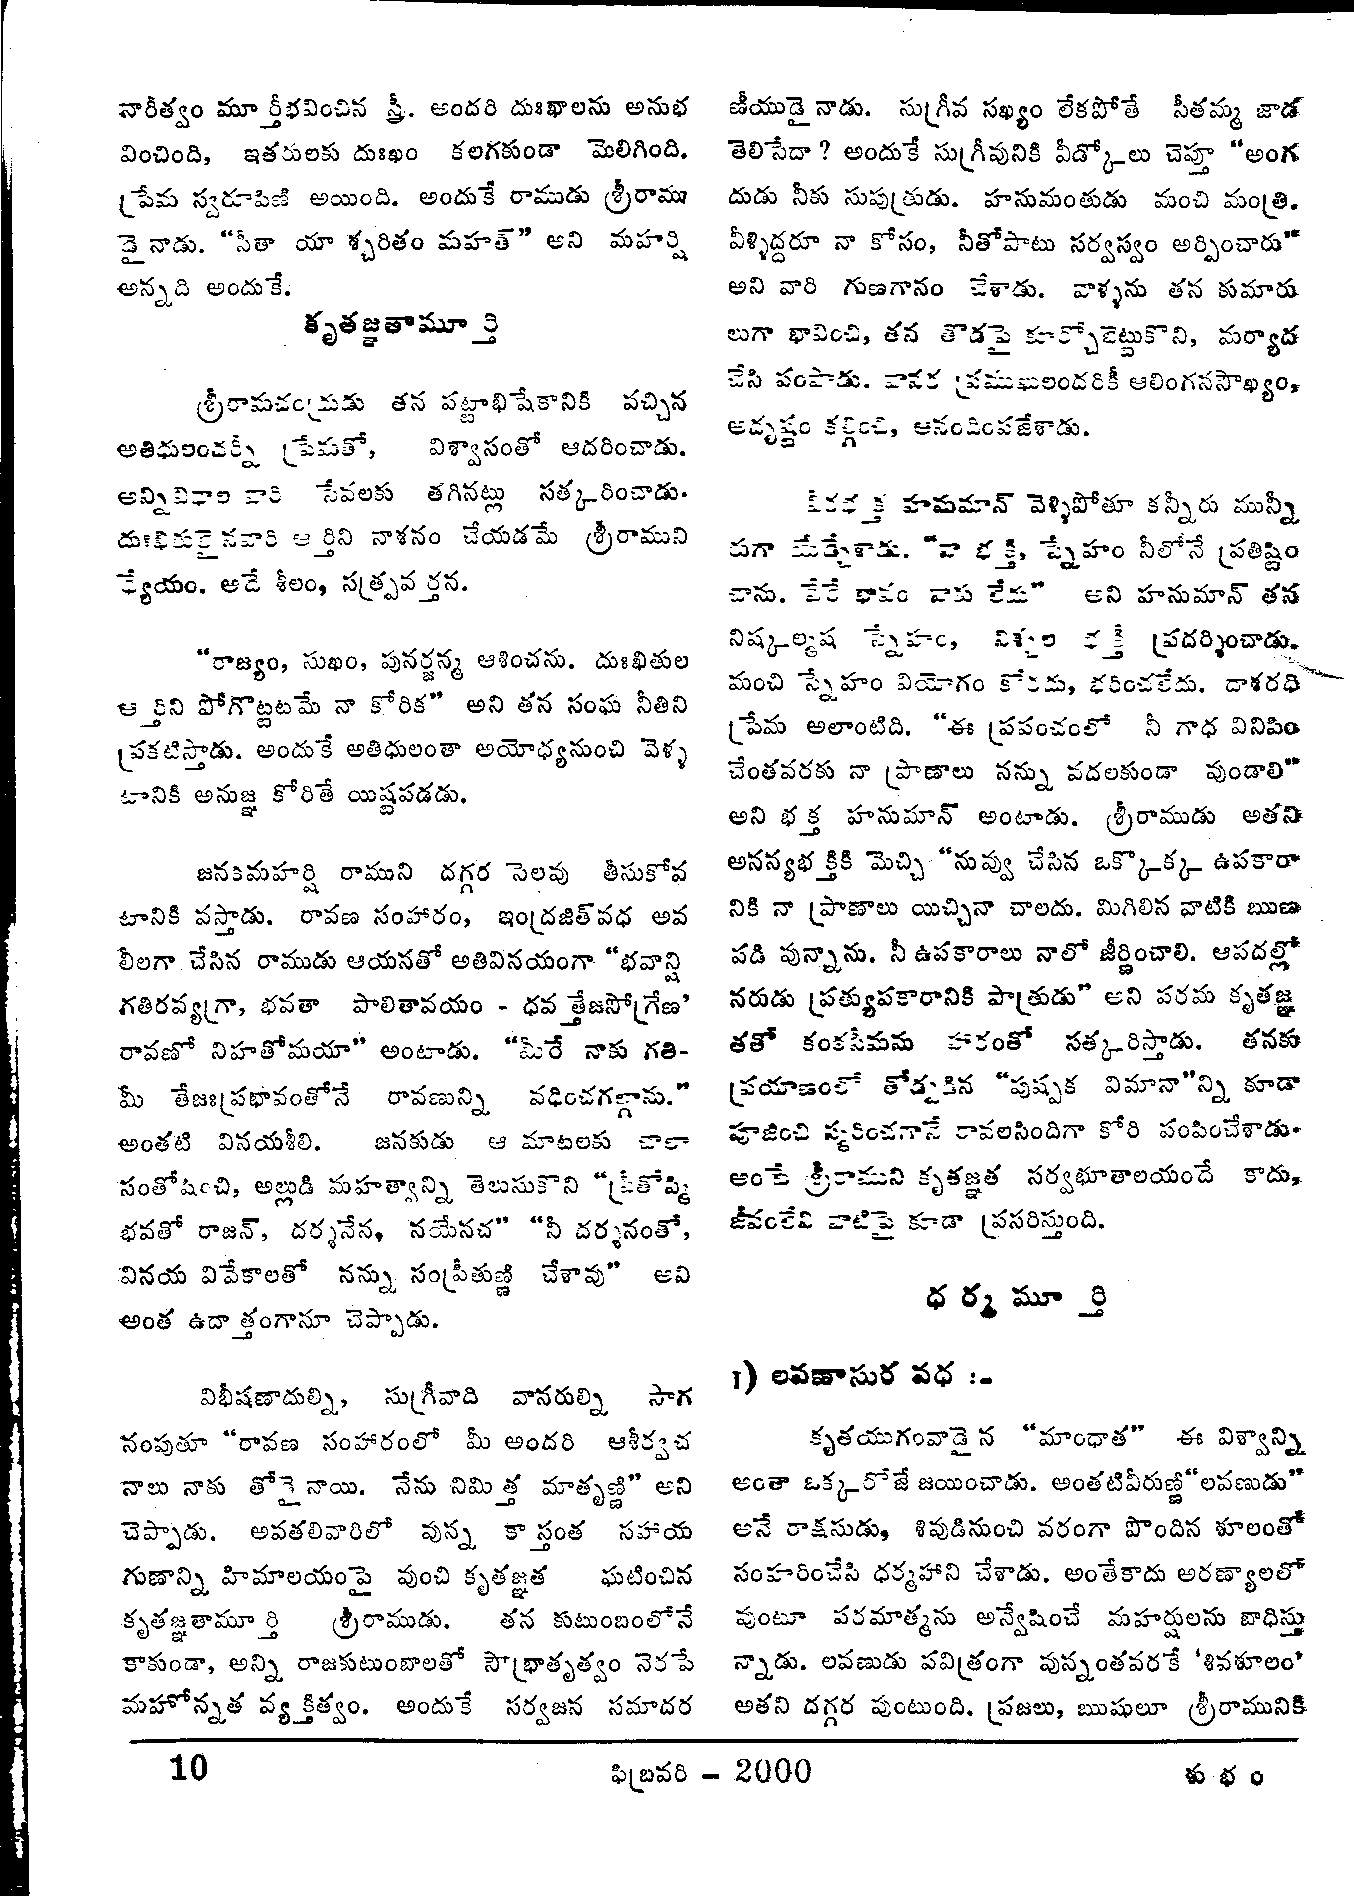 నారీత్వం మూర్తీభవించిన స్త్రీ. అందరి దుఃఖాలను అనుభ
వించింది, ఇతరులకు దుఃఖం కలగకుండా మెలిగింది.
ప్రేమ స్వరూపిణి అయింది. అందుకే రాముడు శ్రీరాము
డైనాడు. “సీతా యా శ్చరితం మహత్” అని మహర్షి
అన్నది అందుకే.
కృతజ్ఞతామూర్తి
శ్రీరామచంద్రుడు తన పట్టాభిషేకానికి వచ్చిన
అతిథులందర్నీ ప్రేమతో, విశ్వాసంతో ఆదరించాడు.
అన్నివిధాల వారి సేవలకు తగినట్లు సత్కరించాడు.
దుఃఖితులైనవారి ఆర్తిని నాశనం చేయడమే శ్రీరాముని
ధ్యేయం. అదే శీలం, సత్ప్రవర్తన.
“రాజ్యం, సుఖం, పునర్జన్మ ఆశించను. దుఃఖితుల
ఆర్తిని పోగొట్టటమే నా కోరిక” అని తన సంఘ నీతిని
ప్రకటిస్తాడు. అందుకే అతిధులంతా అయోధ్యనుంచి వెళ్ళ
టానికి అనుజ్ఞ కోరితే యిష్టపడడు.
జనకమహర్షి రాముని దగ్గర సెలవు తీసుకోవ
టానికి వస్తాడు. రావణ సంహారం, ఇంద్రజిత్‌వధ అవ
లీలగా చేసిన రాముడు ఆయనతో అతివినయంగా “భవాన్హి
గతిరవ్యగ్రా, భవతా పాలితావయం - ధవ త్తేజసోగ్రేణ’
రావణో నిహతోమయా” అంటాడు. “మీరే నాకు గతి-
మీ తేజఃప్రభావంతోనే రావణున్ని వధించగల్గాను.”
అంతటి వినయశీలి. జనకుడు ఆ మాటలకు చాలా
సంతోషించి, అల్లుడి మహత్వాన్ని తెలుసుకొని “ప్రీతోస్మి
భవతో రాజన్, దర్శనేన, నయేనచ” “నీ దర్శనంతో,
వినయ వివేకాలతో నన్ను సంప్రీతుణ్ణి చేశావు” అని
అంత ఉదాత్తంగానూ చెప్పాడు.
విభీషణాదుల్ని, సుగ్రీవాది వానరుల్ని సాగ
నంపుతూ “రావణ సంహారంలో మీ అందరి ఆశీర్వచ
నాలు నాకు తోడైనాయి. నేను నిమిత్త మాతృణ్ణి” అని
చెప్పాడు. అవతలివారిలో వున్న కాస్తంత సహాయ
గుణాన్ని హిమాలయంపై వుంచి కృతజ్ఞత ఘటించిన
కృతజ్ఞతామూర్తి శ్రీరాముడు. తన కుటుంబంలోనే
కాకుండా, అన్ని రాజకుటుంబాలతో సౌభ్రాతృత్వం నెరపే
మహోన్నత వ్యక్తిత్వం. అందుకే సర్వజన సమాదర
ణీయుడైనాడు. సుగ్రీవ సఖ్యం లేకపోతే సీతమ్మ జాడ
తెలిసేదా? అందుకే సుగ్రీవునికి వీడ్కోలు చెప్తూ “అంగ
దుడు నీకు సుపుత్రుడు. హనుమంతుడు మంచి మంత్రి.
వీళ్ళిద్దరూ నా కోసం, నీతోపాటు సర్వస్వం అర్పించారు”
అని వారి గుణగానం చేశాడు. వాళ్ళను తన కుమారు
లుగా భావించి, తన తొడపై కూర్చోబెట్టుకొని, మర్యాద
చేసి పంపాడు. వానర ప్రముఖులందరికీ ఆలింగనసౌఖ్యం,
అదృష్టం కల్గించి, ఆనందింపజేశాడు.
వీరభక్త హనుమాన్ వెళ్ళిపోతూ కన్నీరు మున్నీ
రుగా యేడ్చేశాడు. “నా భక్తి, స్నేహం నీలోనే ప్రతిష్టిం
చాను. వేరే భావం నాకు లేదు” అని హనుమాన్ తన
నిష్కల్మష స్నేహం, నిశ్చల భక్తి ప్రదర్శించాడు.
మంచి స్నేహం వియోగం కోరదు, భరించలేదు. దాశరధి
ప్రేమ అలాంటిది. “ఈ ప్రపంచంలో నీ గాధ వినిపిం
చేంతవరకు నా ప్రాణాలు నన్ను వదలకుండా వుండాలి”
అని భక్త హనుమాన్ అంటాడు. శ్రీరాముడు అతని
అనన్యభక్తికి మెచ్చి “నువ్వు చేసిన ఒక్కొక్క ఉపకారా
నికి నా ప్రాణాలు యిచ్చినా చాలదు. మిగిలిన వాటికి ఋణ
పడి వున్నాను. నీ ఉపకారాలు నాలో జీర్ణించాలి. ఆపదల్లో
నరుడు ప్రత్యుపకారానికి పాత్రుడు” అని పరమ కృతజ్ఞ
తతో కంకసేమను హారంతో సత్కరిస్తాడు. తనకు
ప్రయాణంలో తోడ్పడిన “పుష్పక విమానా”న్ని కూడా
పూజించి స్మరించగానే రావలసిందిగా కోరి పంపించేశాడు.
అంటే శ్రీరాముని కృతజ్ఞత సర్వభూతాలయందే కాదు,
జీవంలేని వాటిపై కూడా ప్రసరిస్తుంది.
ధర్మమూర్తి
1) లవణాసుర వధ :-
కృతయుగంవాడైన “మాంధాత” ఈ విశ్వాన్ని
అంతా ఒక్కరోజే జయించాడు. అంతటివీరుణ్ణి“లవణుడు”
అనే రాక్షసుడు, శివుడినుంచి వరంగా పొందిన శూలంతో
సంహరించేసి ధర్మహాని చేశాడు. అంతేకాదు అరణ్యాలలో
వుంటూ పరమాత్మను అన్వేషించే మహర్షులను బాధిస్తు
న్నాడు. లవణుడు పవిత్రంగా వున్నంతవరకే ‘శివశూలం’
అతని దగ్గర వుంటుంది. ప్రజలు, ఋషులూ శ్రీరామునికి
10 ఫిబ్రవరి - 2000 శుభం